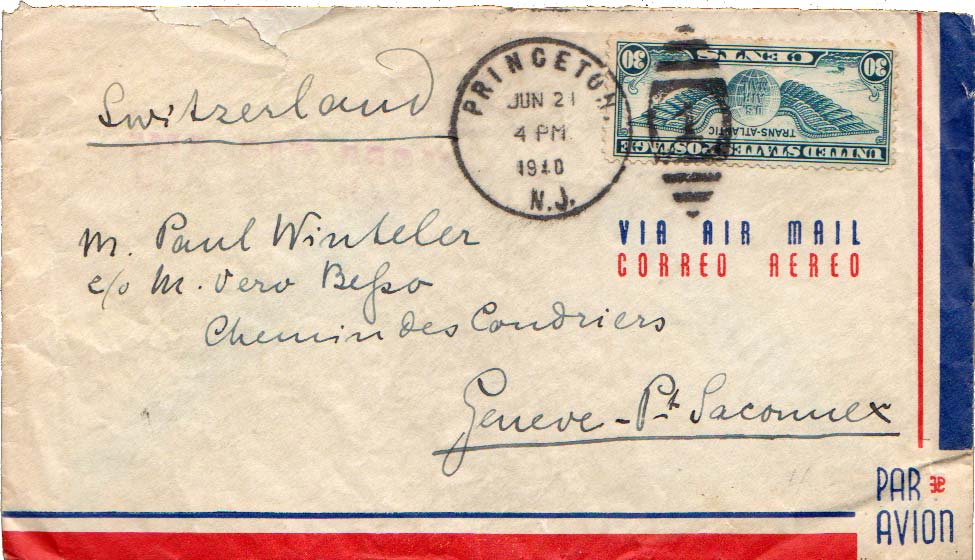 Switzerland
PRINCETON,
JUN 21
4 PM
1940
N.J.
1
UNITED STATES POSTAGE
TRANS-ATLANTIC
U.S.
AIR
MAIL
30 CENTS 30
VIA AIR MAIL
CORREO AEREO
M. Paul Winteler
c/o M. Vero Besso
Chemin des Coudriers
Geneve - Pt Saconnex
PAR
AVION